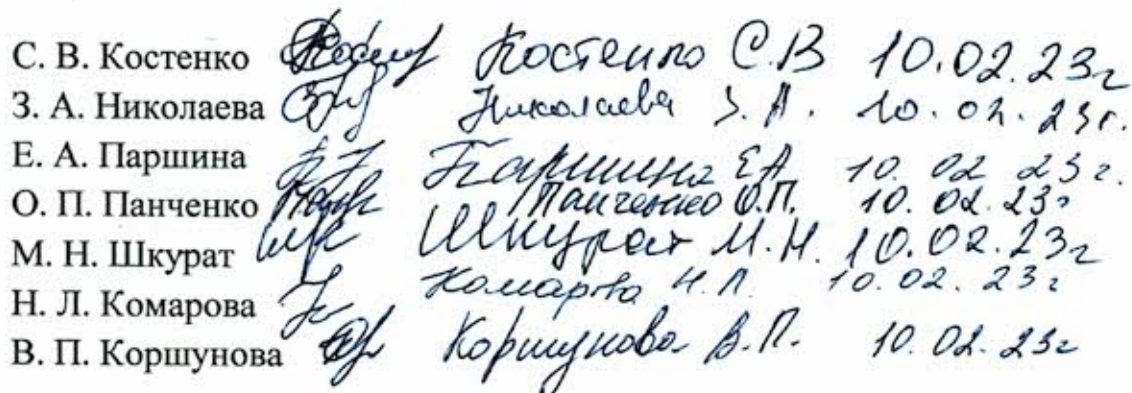 С. В. Костенко Костенко С.В 10.02.23г
З. А. Николаева Николаева З. А. 10.02.23г.
Е. А. Паршина Паршина ЕА 10.02 23г.
О. П. Панченко Панченко О.П. 10.02.23г
М. Н. Шкурат Шкурат М.Н. 10.02.23г
Н. Л. Комарова Комарова Н.Л. 10.02.23г
В. П. Коршунова Коршунова В.П. 10.02.23г